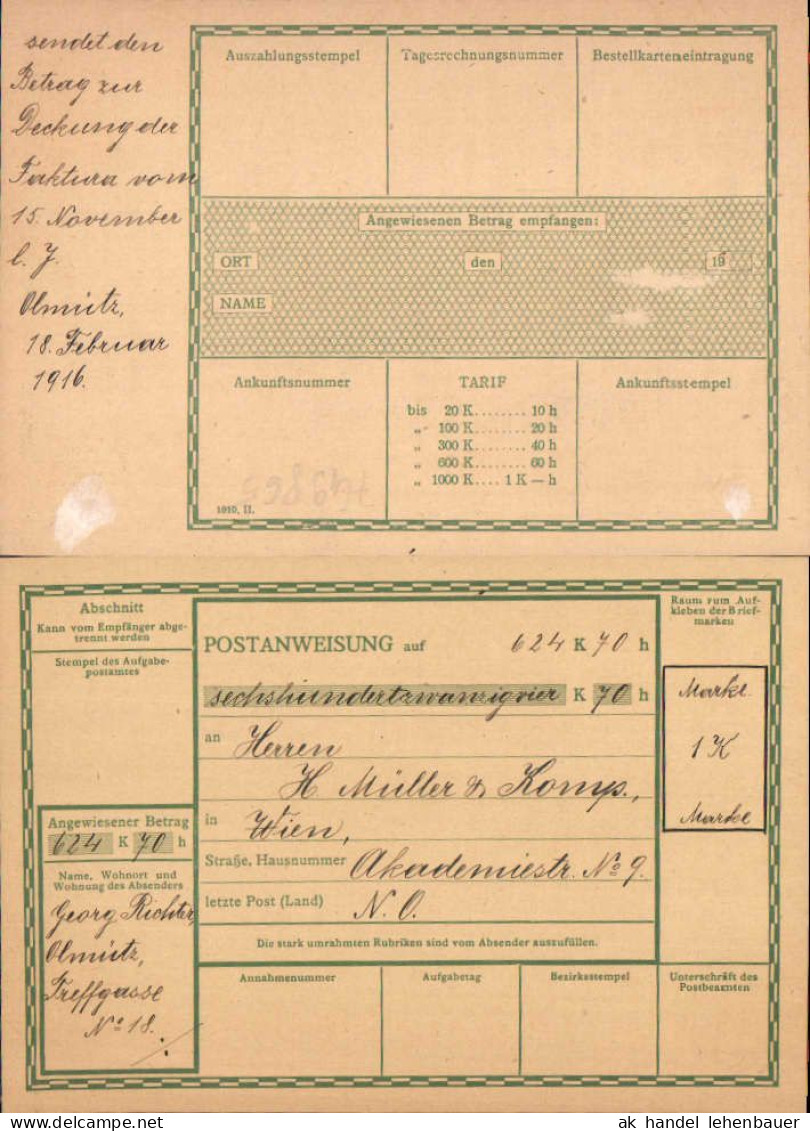 sendet den
Betrag zur
Deckung der
Faktura vom
15. November
l. J.
Olmütz,
18. Februar
1916.
Auszahlungsstempel
Tagesrechnungsnummer
Bestellkarteneintragung
Angewiesenen Betrag empfangen:
ORT den 19
NAME
Ankunftsnummer
TARIF
bis 20 K........ 10 h
„ 100 K........ 20 h
„ 300 K........ 40 h
„ 600 K........ 60 h
„ 1000 K.... 1 K — h
Ankunftsstempel
1910. II.
Abschnitt
Kann vom Empfänger abge-
trennt werden
Stempel des Aufgabe-
postamtes
Angewiesener Betrag
624 K 70 h
Name, Wohnort und
Wohnung des Absenders
Georg Richter,
Olmütz,
Treffgasse
No 18.
POSTANWEISUNG auf 624 K 70 h
sechshundertzwanzigvier K 70 h
an Herren
H. Müller & Komp.,
in Wien,
Straße, Hausnummer Akademiestr. No 9.
letzte Post (Land) N. O.
Die stark umrahmten Rubriken sind vom Absender auszufüllen.
Raum zum Auf-
kleben der Brief-
marken
Marke
1 K
Marke
Annahmenummer
Aufgabetag
Bezirksstempel
Unterschrift des
Postbeamten
ak handel lehenbauer